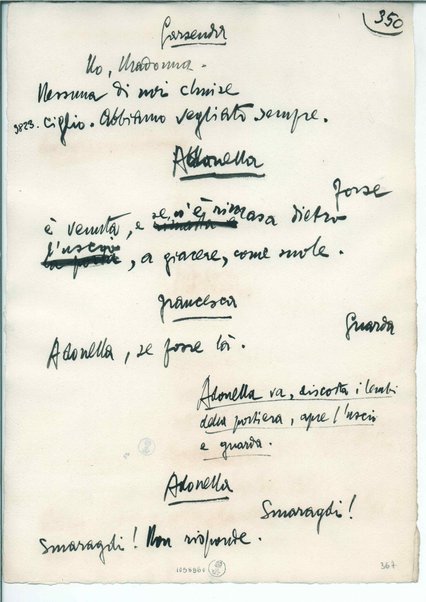 350
Garsenda
No, Madonna.
Nessuna di noi chiuse
3823. ciglio. Abbiamo vegliato sempre.
Adonella
Forse
è venuta, e se n'è rimasa dietro
l'uscio, a giacere, come suole.
Francesca
Guarda
Adonella, se fosse là.
Adonella va, discosta i lembi
della portiera, apre l'uscio
e guarda.
Adonella
Smaragdi!
Smaragdi! Non risponde.
367